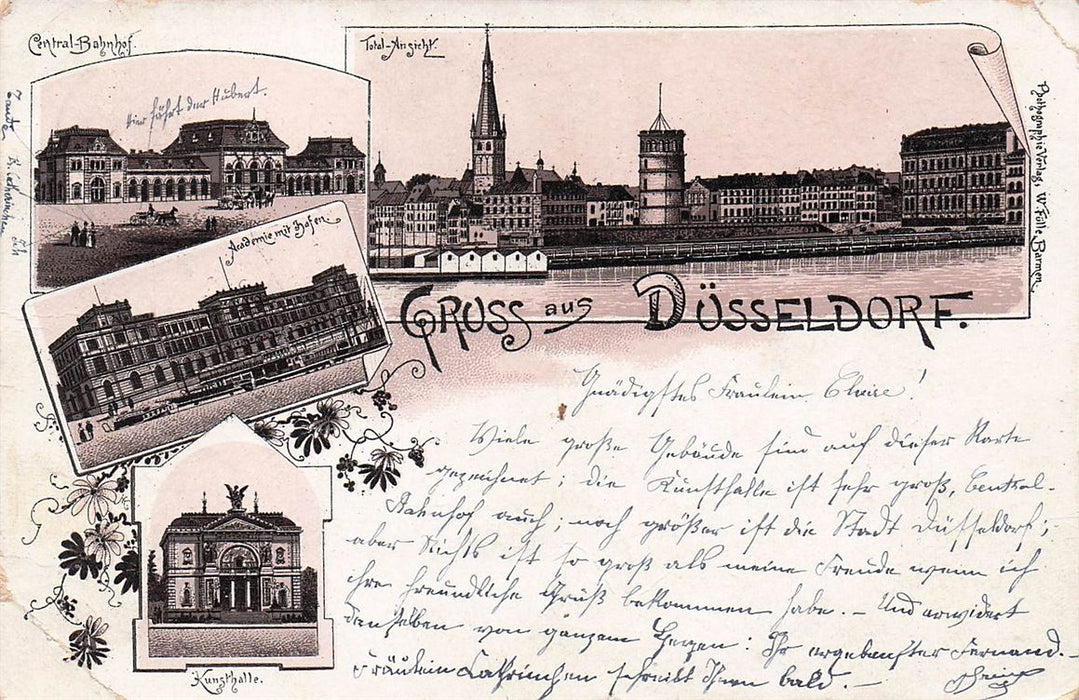 Central-Bahnhof.
Total-Ansicht.
Hier fährt der Hubert.
Academie mit Hafen
Kunsthalle.
GRUSS aus DÜSSELDORF.
Verlag, W. Fülle, Barmen.
Gnädigstes Fräulein !
Viele große Gebäude sind auf dieser Karte
gezeichnet; die Kunsthalle ist sehr groß, Central-
Bahnhof auch; noch größer ist die Stadt Düsseldorf;
aber Nichts ist so groß als meine Freude wenn ich
ihre freundliche Grüß bekommen habe. – Und erwidert
denselben von ganzem Herzen: Ihr ergebenster Fernand. –
Fräulein Cathrinchen schreibt Ihnen bald. –